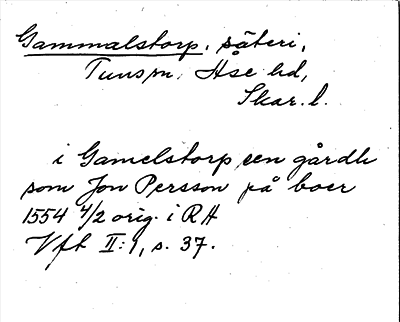 Gammalstorp, säteri,
Tunsm, Åse hd,
Skar. l.
i Gamelstorp een gårdh
som Jon Persson på boer
1554 4/2 orig. i RA
Vfk II:1, s. 37.